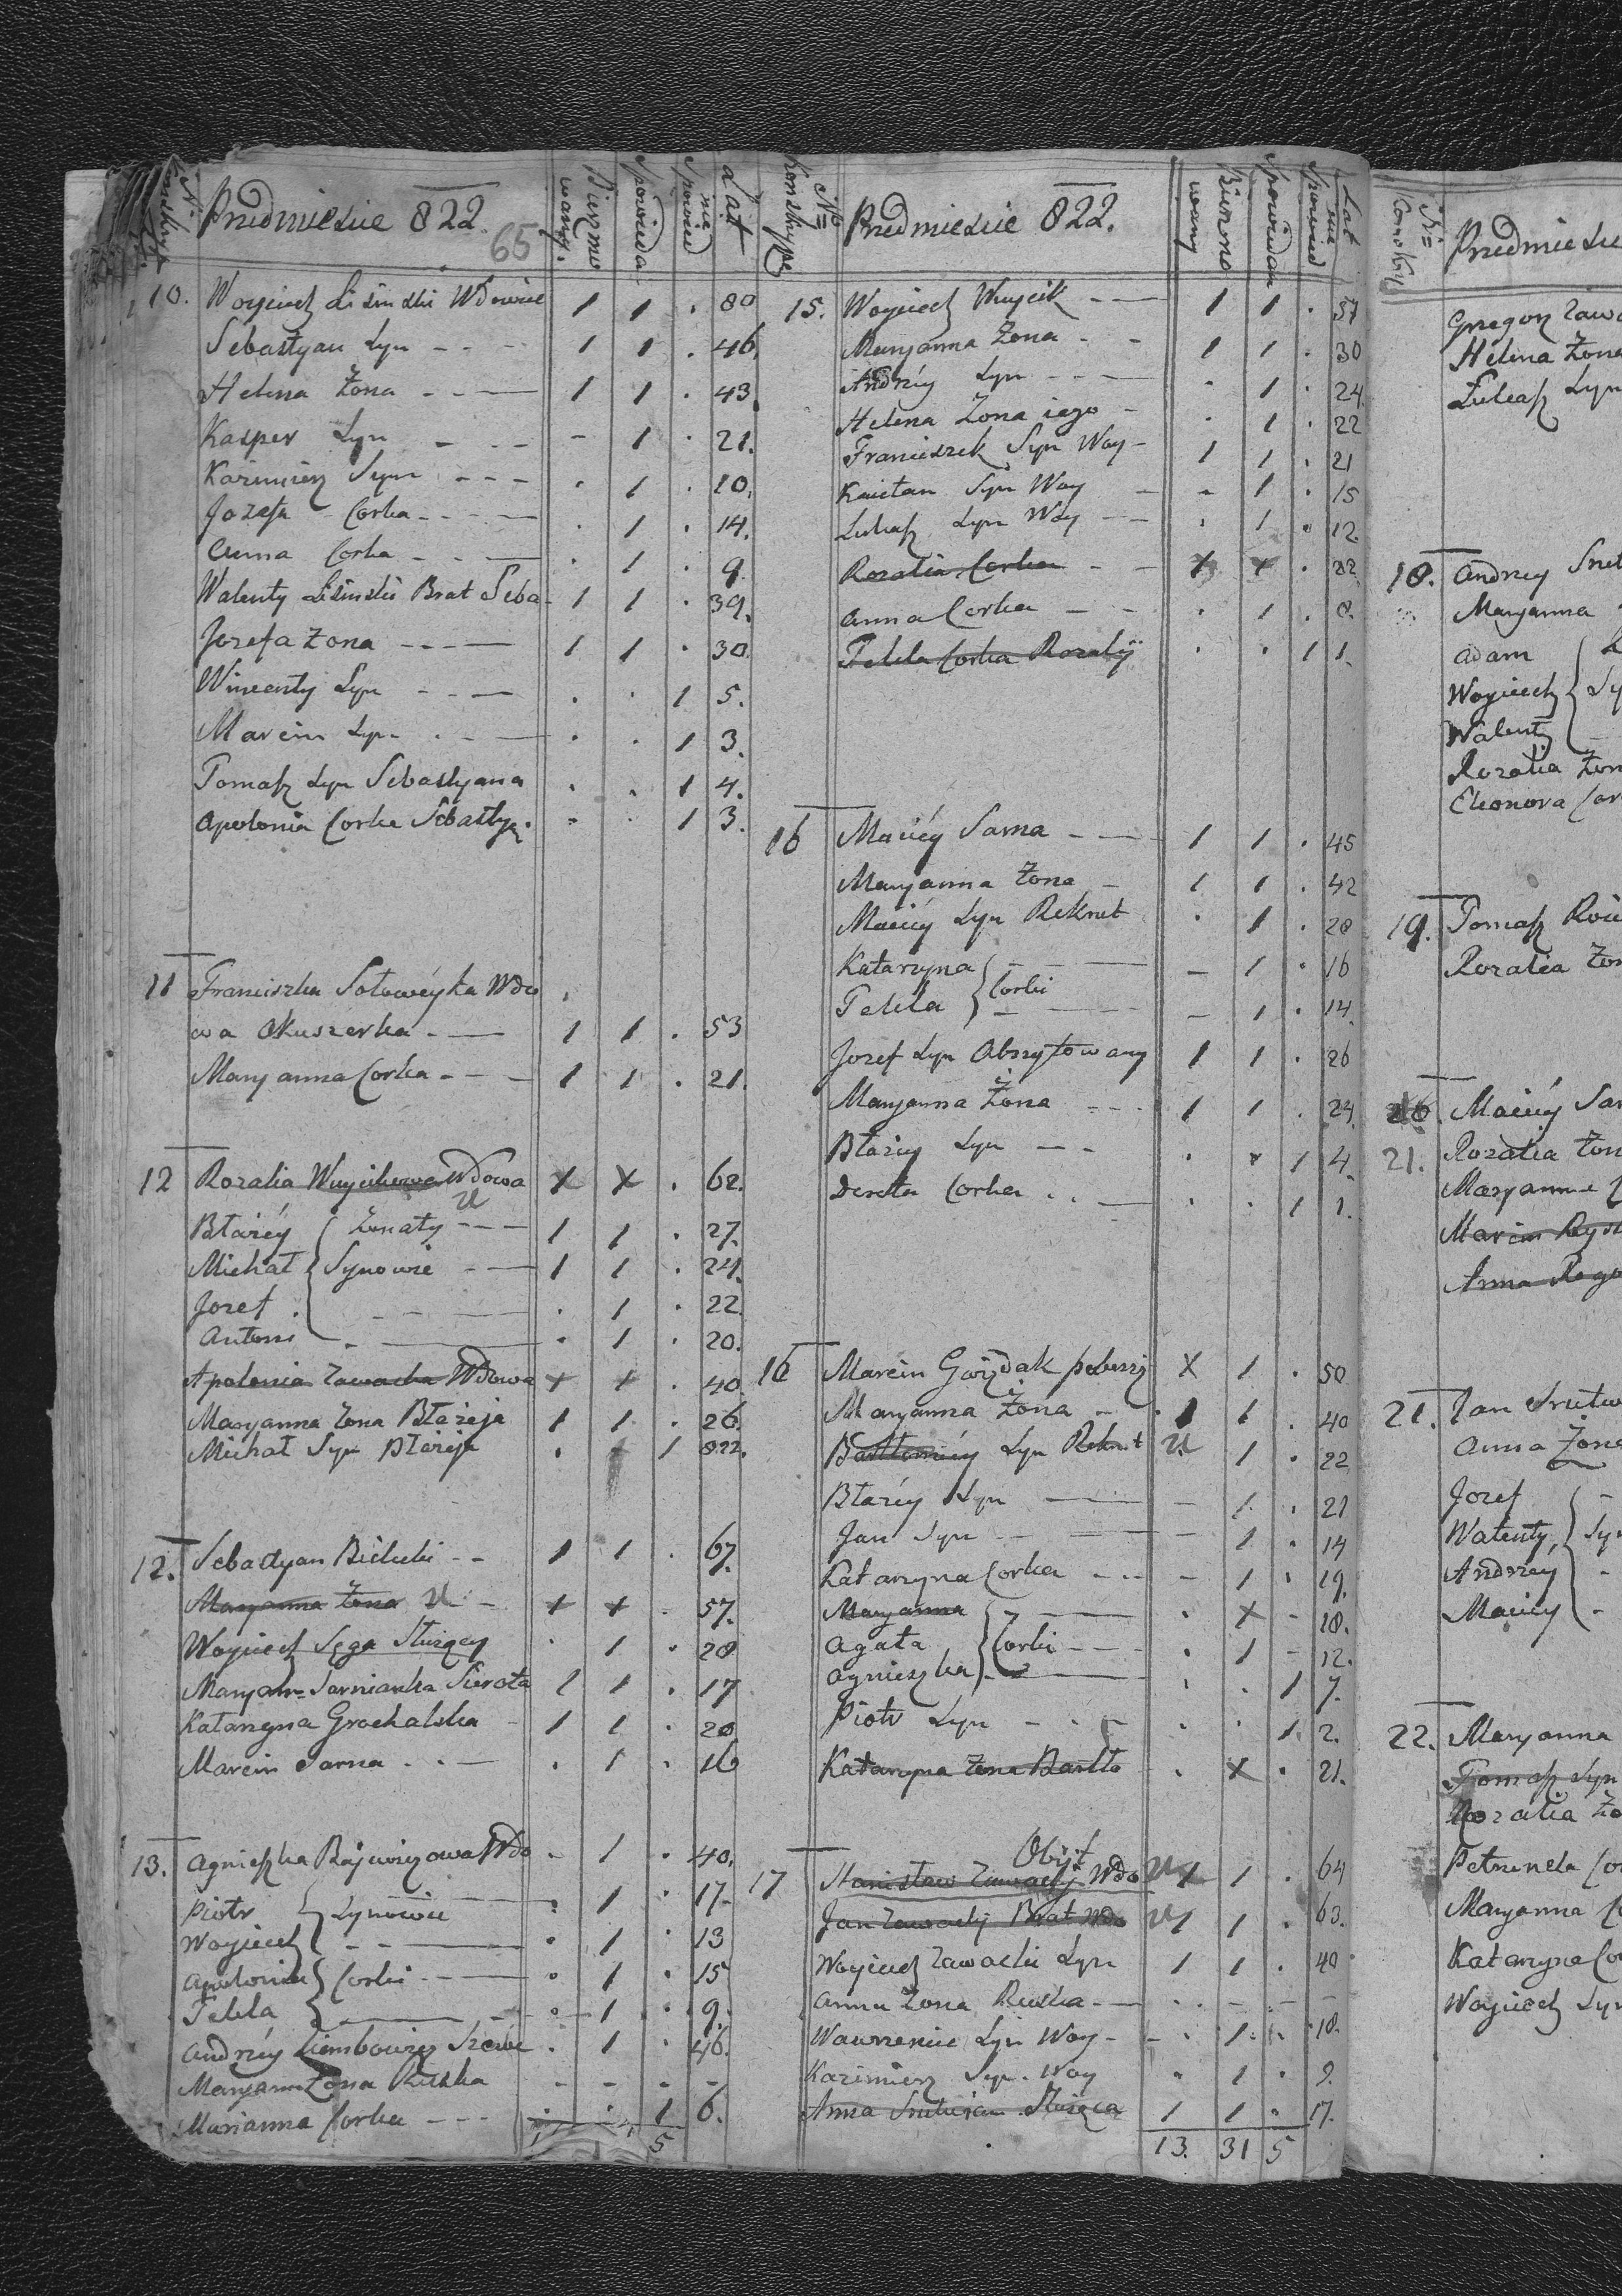 N=
Konskryp
Przedmiescie 822.
65
Bierzmo
wany.
Spowieda
nie
Spowied
Lat
10. Woyciech Lisinski Wdowiec 1 1 . 80
Sebastyan Syn 1 1 . 46.
Helena Żona 1 1 . 43.
Kasper Syn - 1 . 21.
Kazimierz Syn . 1 . 10.
Jozefa Corka . 1 . 14.
Anna Corka . 1 . 9.
Walenty Lisinski Brat Seba 1 1 . 39.
Jozefa Żona 1 1 . 30.
Wincenty Syn . . 1 5.
Marcin Syn . . 1 3.
Tomasz Syn Sebastyana . . 1 4.
Apolonia Corka Sebasty. . . 1 3.
11 Franciszka Sołoweyka Wdo
wa Akuszerka 1 1 . 53
Maryanna Corka 1 1 . 21.
12 Rozalia Wuycikowa Wdowa X X . 62.
Błażéy Żonaty 1 1 . 27.
Michał Synowie 1 1 . 24.
Jozef . 1 . 22.
Antoni . 1 . 20.
Apolonia Zawacka Wdowa X X . 40.
Maryanna Żona Błażeja 1 1 . 26.
Michał Syn Błażeja . + 1 822.
12. Sebastyan Bielecki 1 1 . 67.
Maryanna Żona X X . 57.
Woyciech Sęga Służący . 1 . 28
Maryan= Sarnianka Sierota 1 1 . 17
Katarzyna Grochalska 1 1 . 20
Marcin Sarna . 1 . 16
13. Agnieszka Wdo . 1 . 40.
Piotr Synowie . 1 . 17.
Woyciech . 1 . 13
Apolonia Corki . 1 . 15
Tekla . 1 . 9.
Andrzéy . 1 . 46.
Maryanna Żona Ruska - - - -
Marianna Corka . . 1 6.
5
N=
Konskryp
Przedmiescie 822.
Bierzmo
wany
Spowiedan
nie
Spowied
Lat
15. Woyciech Wuycik 1 1 . 57
Maryanna Żona 1 1 . 30
Andrzéy Syn . 1 . 24.
Helena Żona iego . 1 . 22
Franciszek Syn Woy 1 1 . 21
Kaietan Syn Woy - 1 . 15
Łukasz Syn Woy . 1 . 12.
Rozalia Corka X X . 22
Anna Corka . 1 . 8.
Tekla Corka Rozalij . . 1 1.
16 Maciéy Sarna 1 1 . 45
Maryanna Żona 1 1 . 42
Maciéy Syn Rekrut . 1 . 28
Katarzyna Corki - 1 . 16
Tekla - 1 . 14.
Jozef Syn Abszytowany 1 1 . 26
Maryanna Żona 1 1 . 24.
Błażéy Syn . . 1 4.
Dorota Corka . . 1 1.
16 Marcin Gwiżdak X 1 . 50
Maryanna Żona 1 1 . 40
Bartłomiéy Syn Rekrut 1 . 22
Błażéy Syn - 1 . 21
Jan Syn - 1 . 14
Katarzyna Corka - 1 . 19.
Maryanna . X - 18.
Agata Corki . 1 - 12.
Agnieszka . . 1 7.
Piotr Syn . . 1 2.
Katarzyna Żona Bartło . X . 21.
Obijt
17 Stanisław Zawacky Wdo 1 1 . 64
Jan Zawacky Brat Wdo 1 1 . 63.
Woyciech Zawacki Syn 1 1 . 40
Anna Żona Ruska - - - -
Wawrzeniec Syn Woy - 1 . 18.
Kazimierz Syn Woy . 1 . 9.
Anna Służąca 1 1 . 17.
13. 31 5
N=
Konskry
Przedmiescie
Grzegorz Zawa
Helena Żona
Łukasz Syn
18. Andrzey
Maryanna
Adam
Woyciech
Walenty
Rozalia Żon
Eleonora Cor
19. Tomasz
Rozalia Żon
Maciéy Sar
21. Rozalia Żon
Maryanna
Marcin
Anna
21. Jan
Anna Żona
Jozef
Walenty Syn
Andrzéy
Maciéy
22. Maryanna
Tomasz Syn
Rozalia Żo
Petronela Co
Maryanna
Katarzyna Co
Woyciech Syn